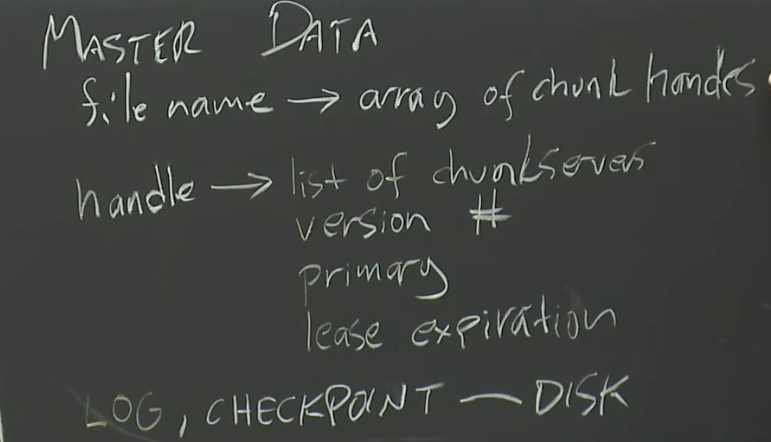 MASTER DATA
file name → array of chunk handes
handle → list of chunkservers
version #
primary
lease expiration
LOG, CHECKPOINT — DISK